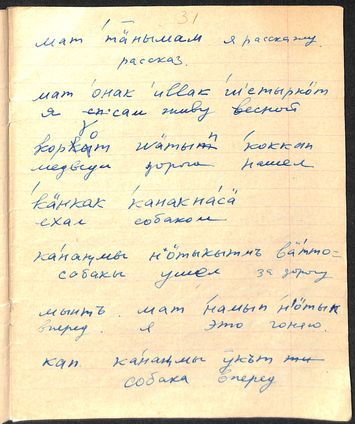 31
мат та̄нымам я расскажу
рассказ.
мат о́нак и́ввак ш́естырко́т
я писал живу весной
корҕо̨т шӓтып ко́ккап
медведи дорога нашел
кӓнкак канакпа́сӓ
ехал собакой
ка́наӈмы нӧтыкытнъ вӓтто=
собакы ушел за дорогу
мынтъ. мат на́мып нӧ́тык
вперед. я это гоняю.
кап ка́наӈмы ӯкът
собака вперед